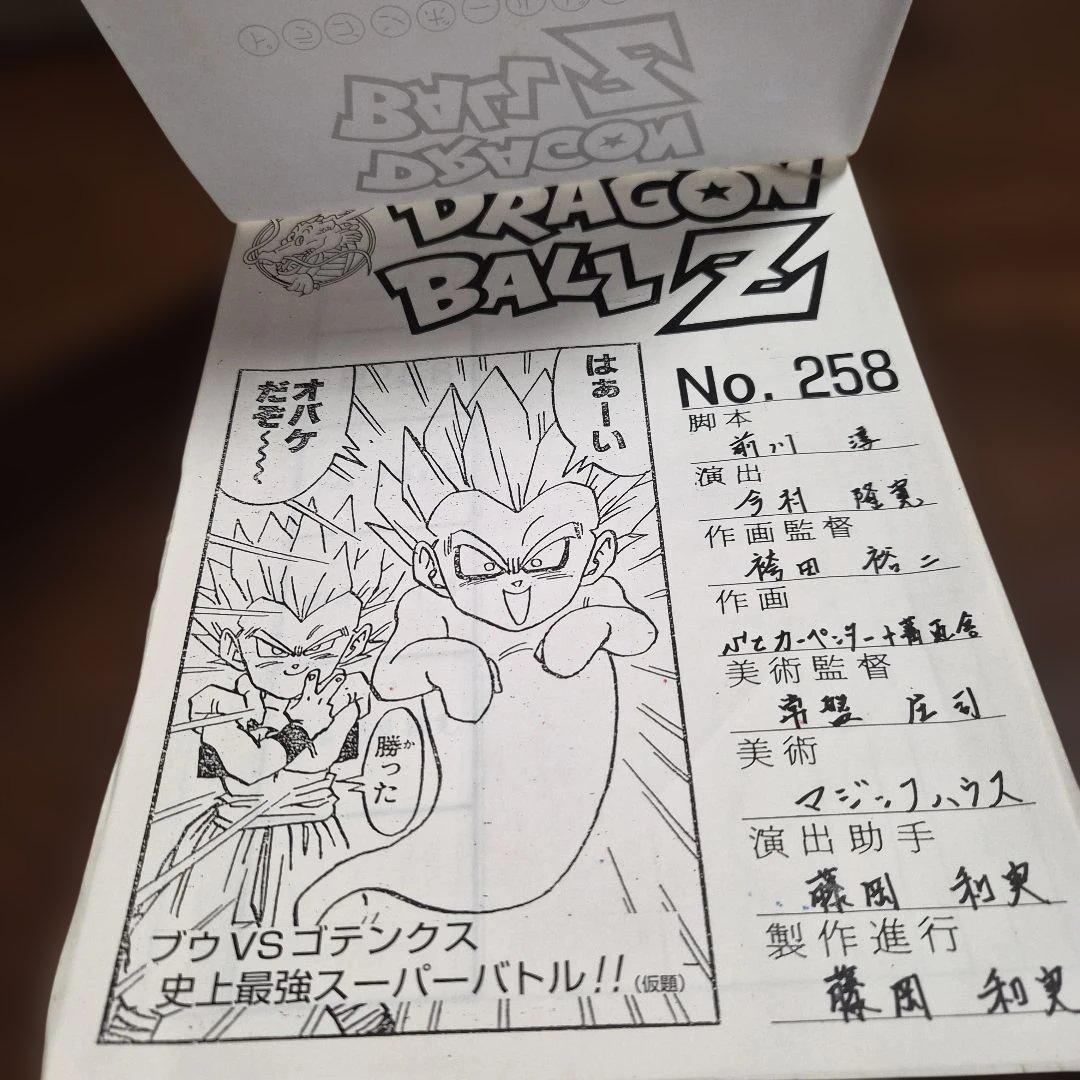 DRAGON
BALL Z
No. 258
脚本
前川 淳
演出
今村 隆寛
作画監督
袴田 裕二
作画
美術監督
常盤 庄司
美術
マジックハウス
演出助手
藤岡 利実
製作進行
藤岡 利実
はぁーい
オバケ
だぞ〜〜〜
勝った
か
ブウVSゴテンクス
史上最強スーパーバトル!!(仮題)